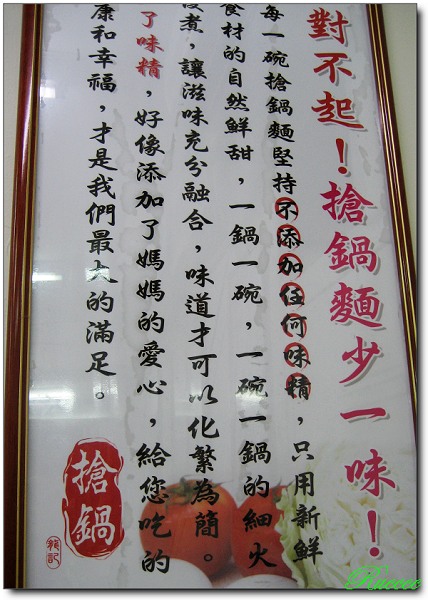 對不起！搶鍋麵少一味！
每一碗搶鍋麵堅持不添加任何味精，只用新鮮
食材的自然鮮甜，一鍋一碗，一碗一鍋的細火
慢煮，讓滋味充分融合，味道才可以化繁為簡。
了味精，好像添加了媽媽的愛心，給您吃的
康和幸福，才是我們最大的滿足。
搶鍋